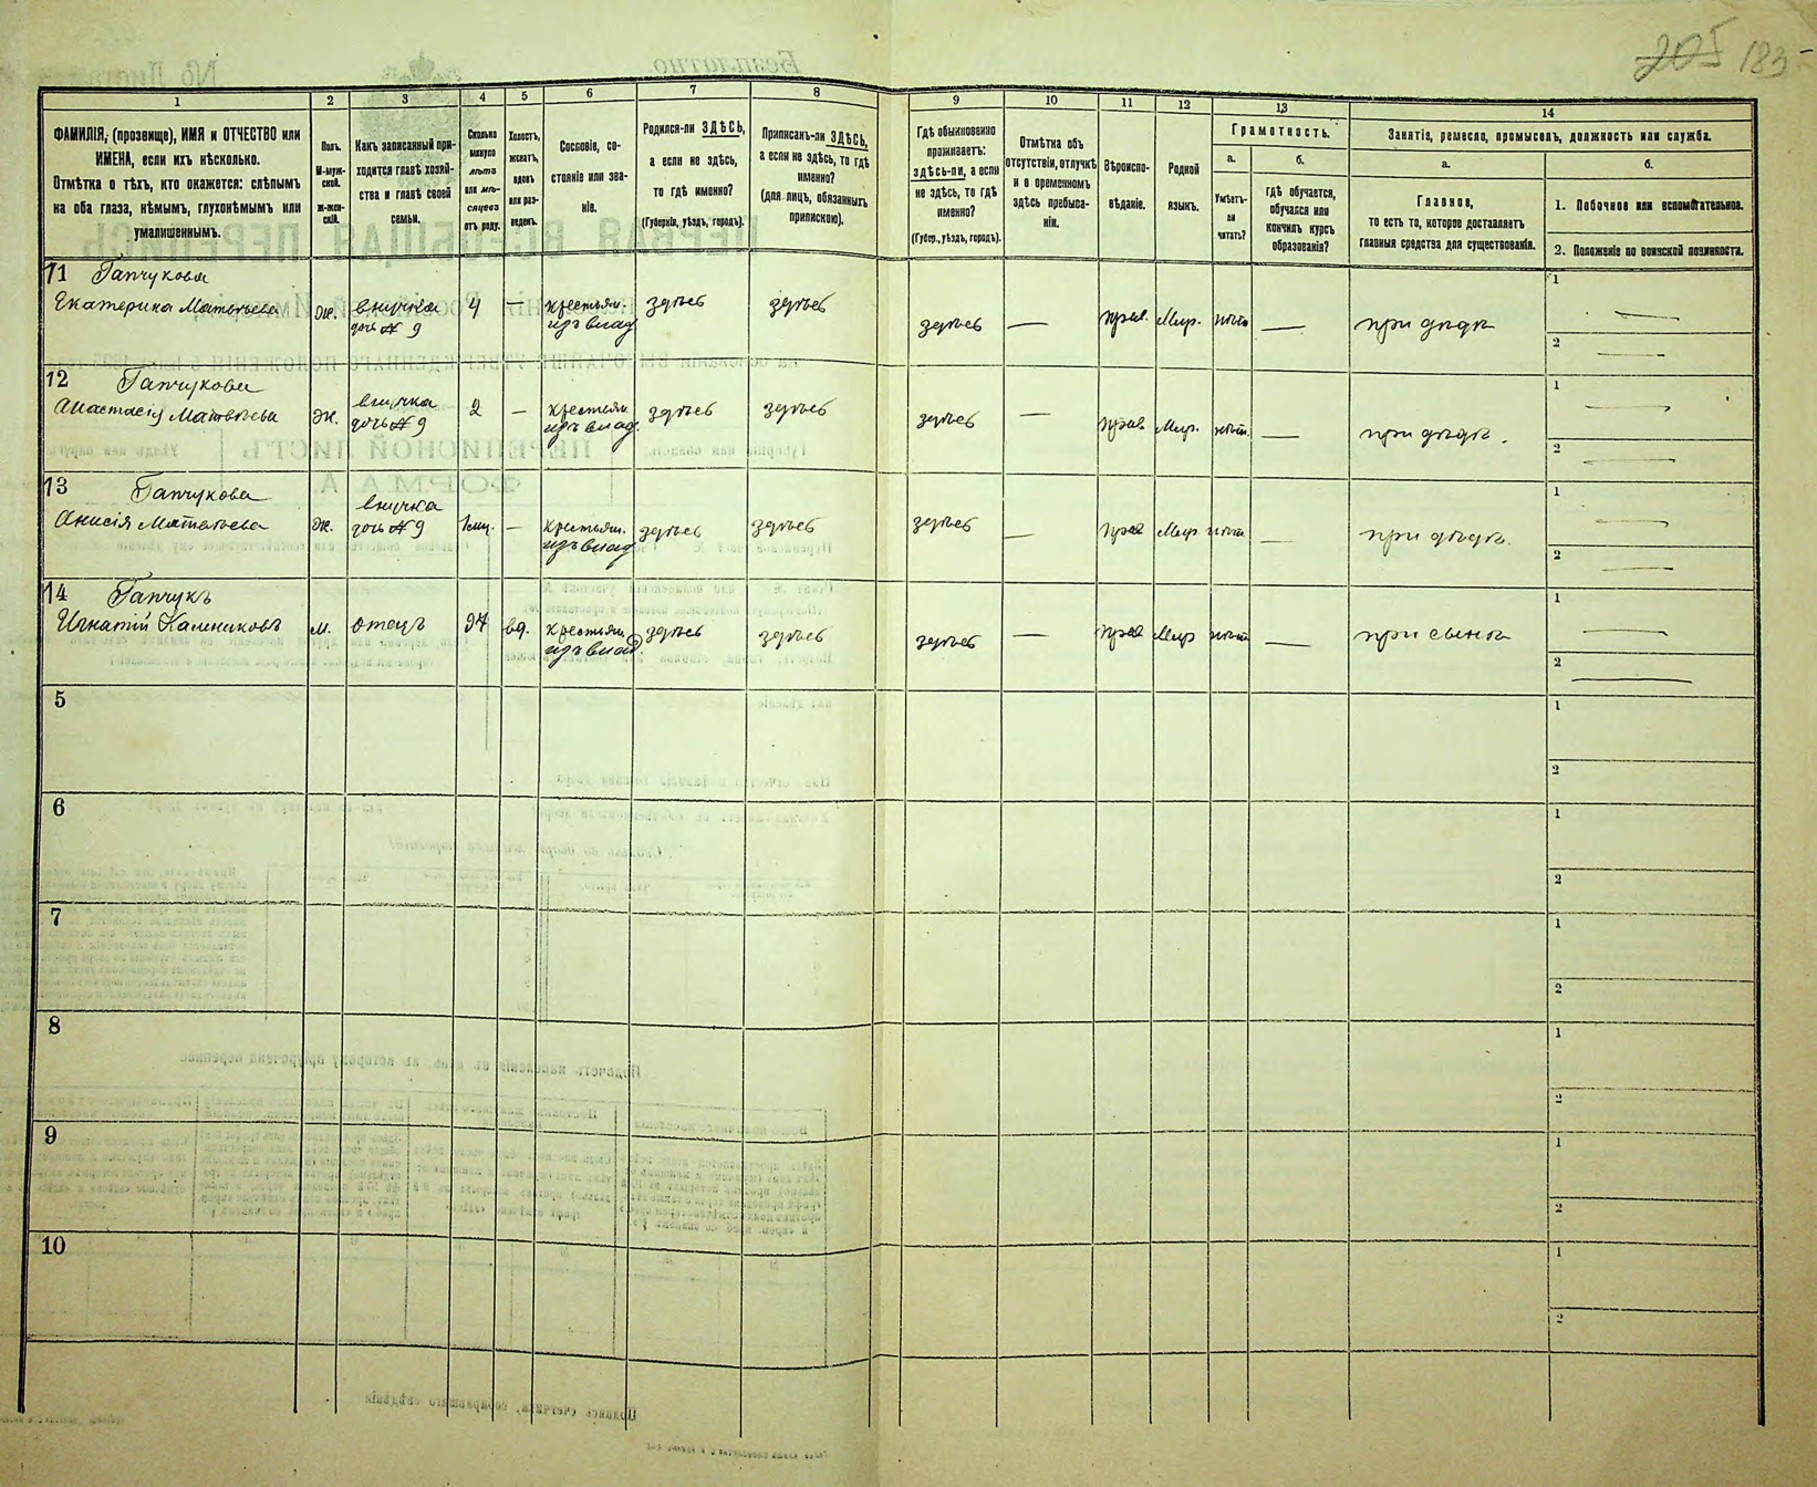 205 183
1 2 3 4 5 6 7 8 9 10 11 12 13 14
ФАМИЛІЯ, (прозвище), ИМЯ и ОТЧЕСТВО или
ИМЕНА, если ихъ нѣсколько.
Отмѣтка о тѣхъ, кто окажется: слѣпымъ
на оба глаза, нѣмымъ, глухонѣмымъ или
умалишеннымъ.
Полъ.
М-муж-
ской.
Ж-жен-
скій.
Какъ записанный при-
ходится главѣ хозяй-
ства и главѣ своей
семьи.
Сколько
минуло
лѣтъ
или мѣ-
сяцевъ
отъ роду.
Холостъ,
женатъ,
вдовъ
или раз-
веденъ.
Сословіе, со-
стояніе или зва-
ніе.
Родился-ли ЗДѢСЬ,
а если не здѣсь,
то гдѣ именно?
(Губернія, уѣздъ, городъ).
Приписанъ-ли ЗДѢСЬ,
а если не здѣсь, то гдѣ
именно?
(для лицъ, обязанныхъ
припискою).
Гдѣ обыкновенно
проживаетъ:
здѣсь-ли, а если
не здѣсь, то гдѣ
именно?
(Губер., уѣздъ, городъ).
Отмѣтка объ
отсутствіи, отлучкѣ
и о временномъ
здѣсь пребыва-
ніи.
Вѣроиспо-
вѣданіе.
Родной
языкъ.
Грамотность.
а.
Умѣетъ-
ли
читать?
б.
гдѣ обучается,
обучался или
кончилъ курсъ
образованія?
Занятіе, ремесло, промыселъ, должность или служба.
а.
Главное,
то есть то, которое доставляетъ
главныя средства для существованія.
б.
1. Побочное или вспомогательное.
2. Положеніе по воинской повинности.
11 Гапчукова
Екатерина Матвѣева ж. внучка 4 — крестьян. здѣсь здѣсь здѣсь — прав. Мир. нѣтъ — при дѣдѣ 1 —
дочь № 9 изъ влад 2 —
12 Гапчукова
Анастасія Матвѣева ж. внучка 2 — крестьян. здѣсь здѣсь здѣсь — прав. Мир. нѣтъ. — при дѣдѣ. 1 —
дочь № 9 изъ влад. 2 —
13 Гапчукова
Анисія Матвѣева ж. внучка 1 мц. — крестьян. здѣсь здѣсь здѣсь — прав Мир нѣтъ — при дѣдѣ. 1 —
дочь № 9 изъ влад 2 —
14 Гапчукъ
Игнатій Калениковъ м. отецъ 94 вд. крестьян. здѣсь здѣсь здѣсь — прав Мир нѣтъ — при сынѣ 1 —
изъ влад. 2 —
5 1
2
6 1
2
7 1
2
8 1
2
9 1
2
10 1
2